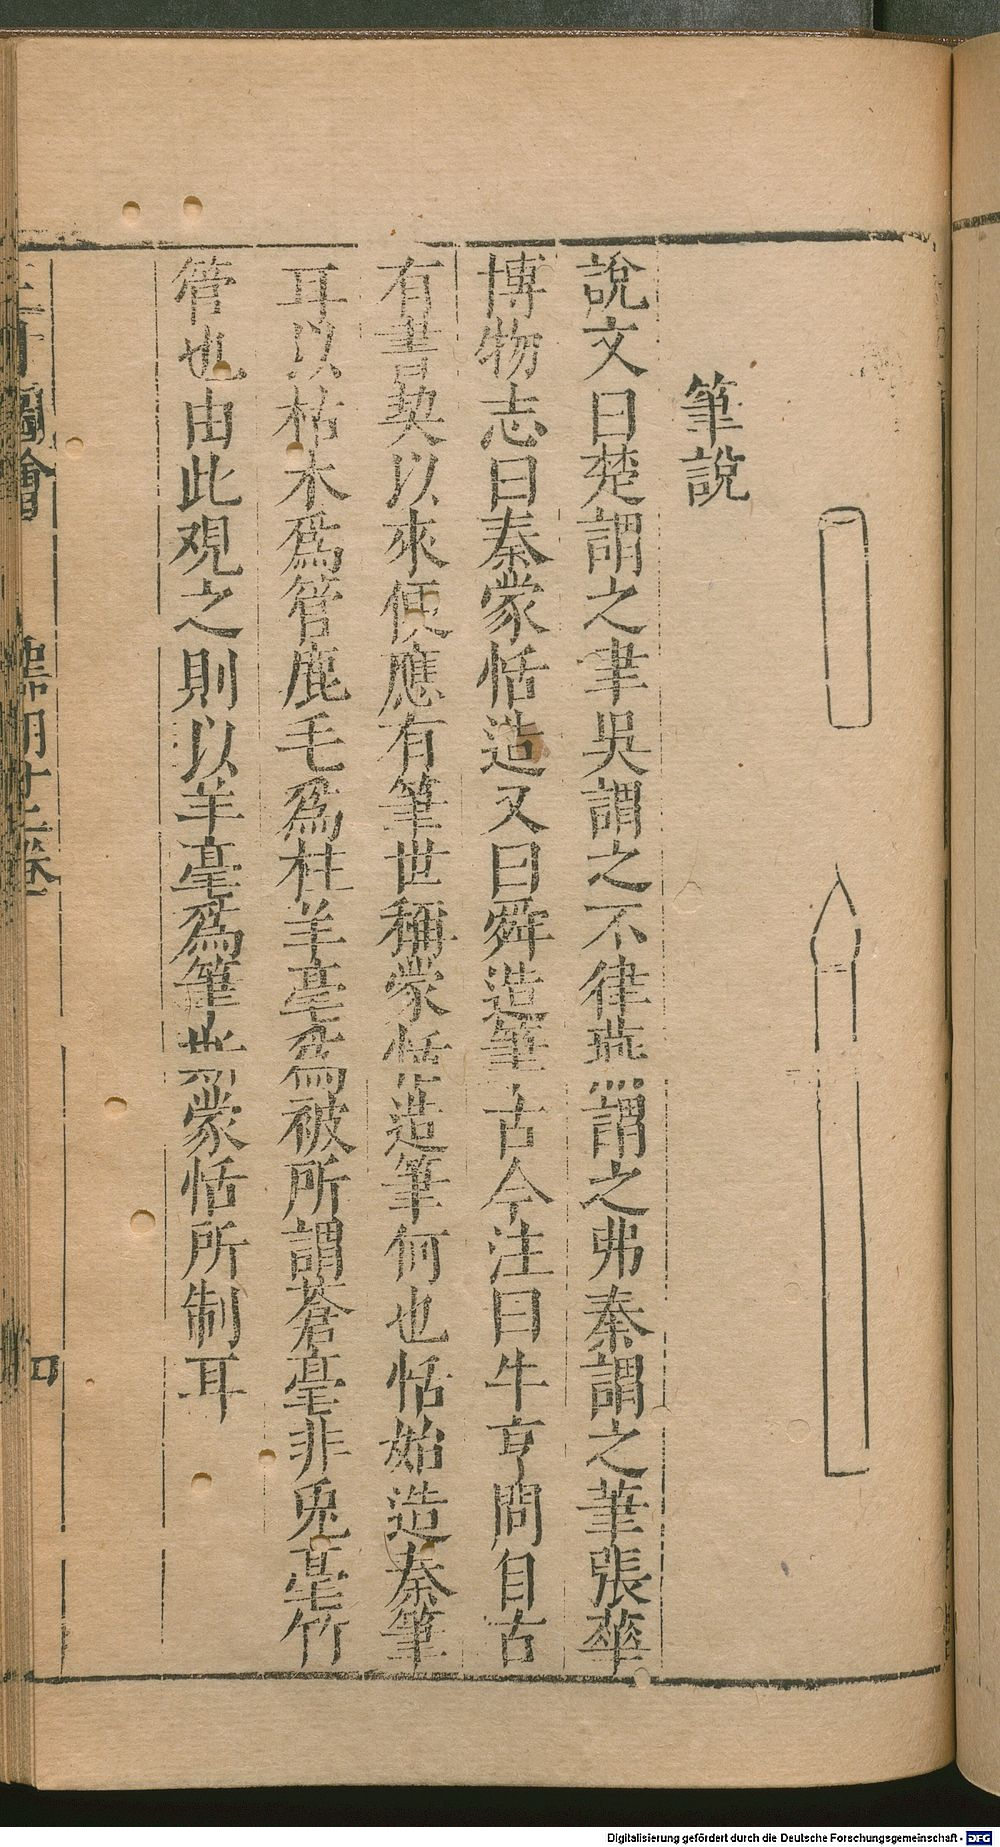 筆說
說文曰楚謂之聿吳謂之不律燕謂之弗秦謂之筆張華
博物志曰秦蒙恬造又曰舜造筆古今注曰牛亨問自古
有書契以來便應有筆世稱蒙恬造筆何也恬始造秦筆
耳以枯木爲管鹿毛爲柱羊毫爲被所謂蒼毫非兎毫竹
管也由此观之則以羊毫爲筆此蒙恬所制耳
圖會 器用十二卷 四
Digitalisierung gefördert durch die Deutsche Forschungsgemeinschaft - DFG